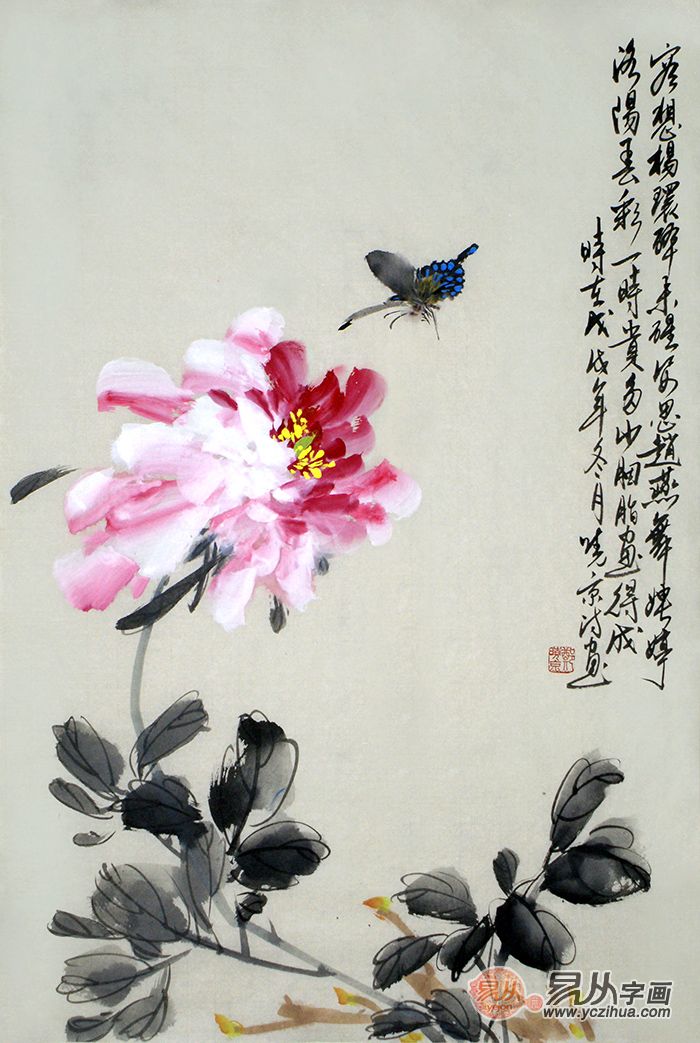 容想楊環醉未醒姿思趙燕舞娉婷
洛陽春彩一時貴多少胭脂畫得成
時在戊戌年冬月曉京詩畫
易从 易从字画
www.yczihua.com